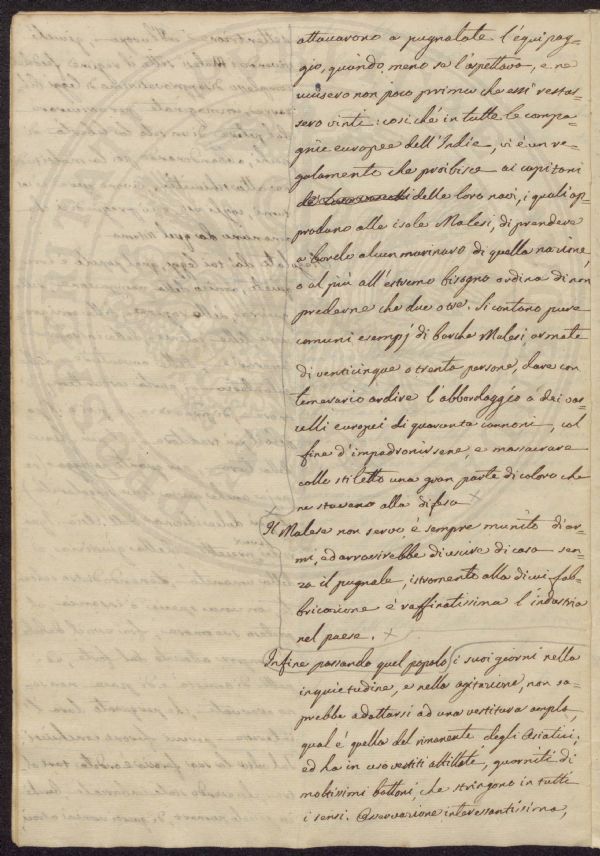 attaccarono a pugnalate l'equipag=
gio, quando meno se l'aspettava, e ne
uccisero non poco prima che essi restas=
sero vinti: cosi ché in tutte le compa=
gnie europee dell'Indie, vi é un re=
golamento che proibisce ai capitani
delle loro navi, i quali ap=
prodano alle isole Malesi, di prendere
a bordo alcun marinaro di quella nazione,
o al più all'estremo bisogno ordina di non
prederne che due o tre. Si contano pure
comuni esempj di barche Malesi, armate
di venticinque o trenta persone, dare con
temerario ardire l'abbordaggio a dei vas=
celli europei di quaranta cannoni, col
fine d'impadronirsene, e massacrare
collo stiletto una gran parte di coloro che
ne stavano alla difesa
Il Malese non servo, é sempre munito d'ar=
mi, ed arrossirebbe di uscire di casa sen=
za il pugnale, istromento alla di cui fab=
bricazione é raffinatissima l'industria
nel paese.
Infine passando quel popolo i suoi giorni nella
inquietudine, e nella agitazione, non sa=
prebbe adattarsi ad una vestitura ampla,
qual é quella del rimanente degli Asiatici;
ed ha in uso vestiti attillati, guorniti di
moltissimi bottoni, che stringono in tutti
i sensi. Osservazione interessantissima,